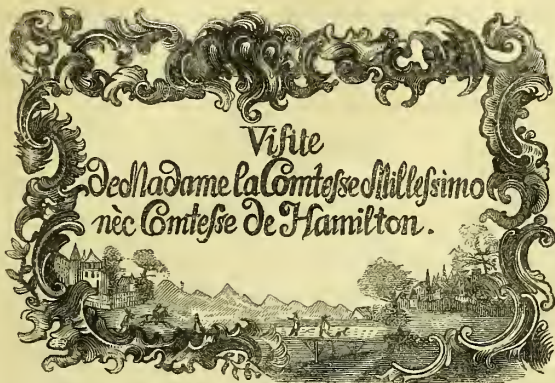 Visite
de Madame la Comtesse Millessimo
nèc Comtesse de Hamilton.